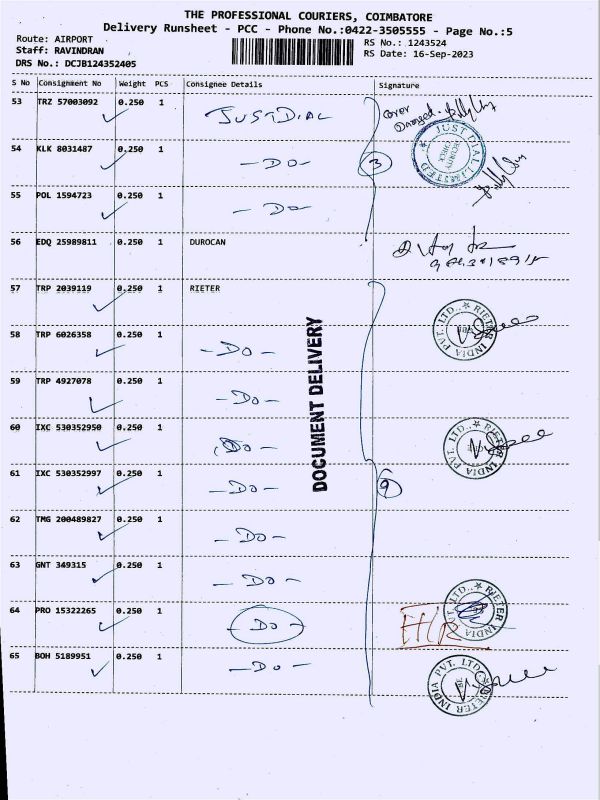 THE PROFESSIONAL COURIERS, COIMBATORE
Delivery Runsheet - PCC - Phone No.:0422-3505555 - Page No.:5
Route: AIRPORT
RS No.: 1243524
Staff: RAVINDRAN
RS Date: 16-Sep-2023
DRS No.: DCJB124352405
S No Consignment No Weight PCS Consignee Details Signature
53 TRZ 57003092 0.250 1 JUSTDIAL
Cover
Damaged
JUST DIAL LIMITED
SECURITY CHECK
54 KLK 8031487 0.250 1 - DO -
3
55 POL 1594723 0.250 1 - DO -
56 EDQ 25989811 0.250 1 DUROCAN
57 TRP 2039119 0.250 1 RIETER
RIETER INDIA PVT. LTD.
58 TRP 6026358 0.250 1 - DO -
59 TRP 4927078 0.250 1 - DO -
60 IXC 530352950 0.250 1 - DO -
RIETER INDIA PVT. LTD.
61 IXC 530352997 0.250 1 - DO -
9
62 TMG 200489827 0.250 1 - DO -
63 GNT 349315 0.250 1 - DO -
64 PRO 15322265 0.250 1 - DO -
RIETER INDIA PVT. LTD.
65 BOH 5189951 0.250 1 - DO -
RIETER INDIA PVT. LTD.
DOCUMENT DELIVERY